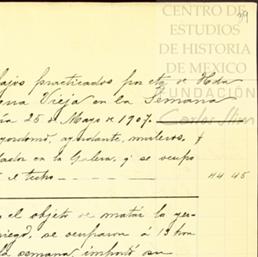 CENTRO DE
ESTUDIOS
DE HISTORIA
DE MEXICO
FUNDACIÓN
bajos practicados por cta de Hda
Vieja en la Semana
25 de Mayo de 1907.
ayudante, muleros, y
en la Galera, q' se ocupo
el techo 44 45
el objeto de matar la yer-
riego, se ocuparon á 13 hom
semana, importó su